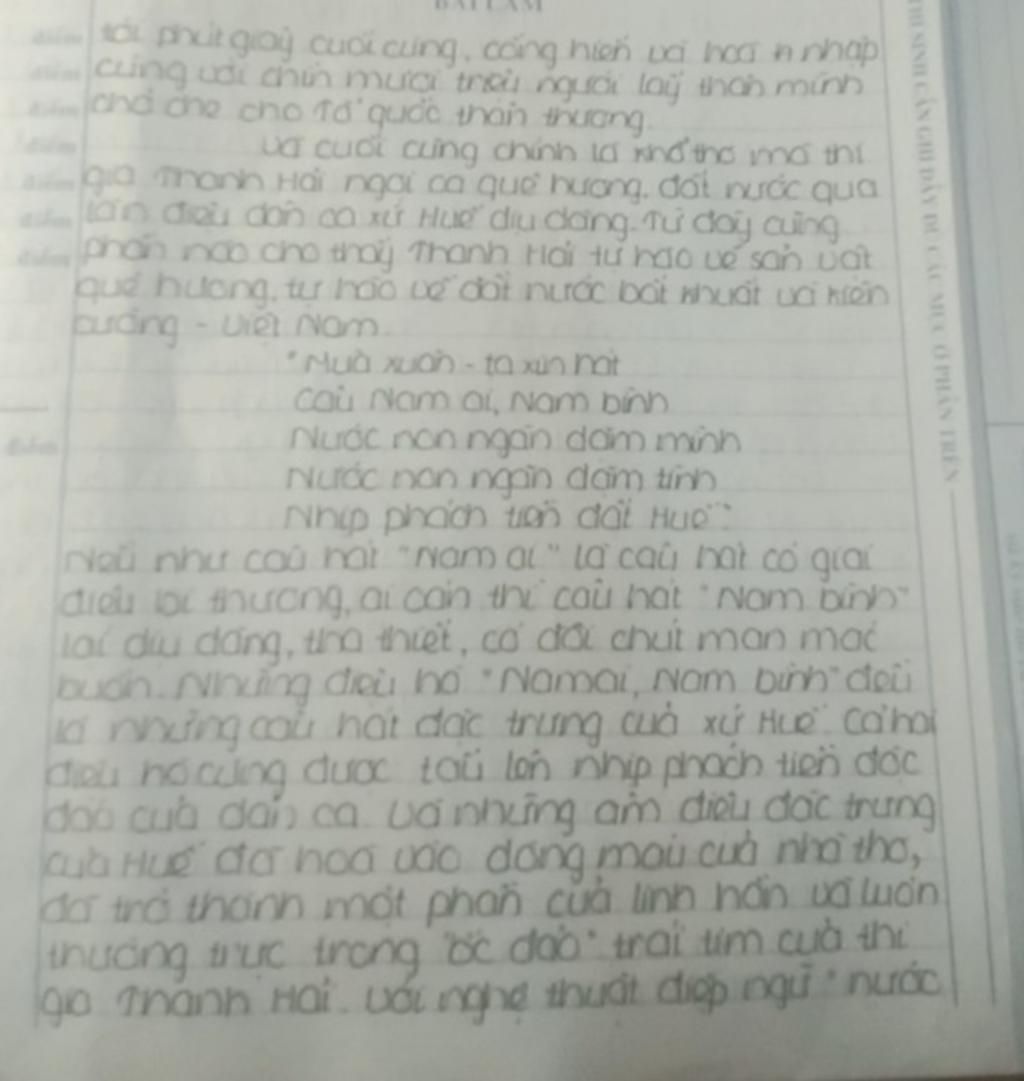 BÀI LÀM
tới phút giây cuối cùng, cống hiến và hoà nhập
cùng với chín mươi triệu người lấy thân mình
chở che cho Tổ quốc thân thương.
Và cuối cùng chính là khổ thơ mà thi
gia Thanh Hải ngợi ca quê hương, đất nước qua
làn điệu dân ca xứ Huế dịu dàng. Từ đây cũng
phần nào cho thấy Thanh Hải tự hào về sản vật
quê hương, tự hào về đất nước bất khuất và kiên
cường - Việt Nam.
"Mùa xuân - ta xin hát
Câu Nam ai, Nam bình
Nước non ngàn dặm mình
Nước non ngàn dặm tình
Nhịp phách tiền đất Huế".
Nếu như câu hát "Nam ai" là câu hát có giai
điệu bi thương, ai oán thì câu hát "Nam bình"
lại dịu dàng, tha thiết, có đôi chút man mác
buồn. Những điệu hò "Nam ai, Nam bình" đều
là những câu hát đặc trưng của xứ Huế. Cả hai
điệu hò cùng được tấu lên nhịp phách tiền độc
đáo của dân ca. Và những âm điệu đặc trưng
của Huế đã hoà vào dòng máu của nhà thơ,
đã trở thành một phần của linh hồn và luôn
thường trực trong "ốc đảo" trái tim của thi
gia Thanh Hải. Với nghệ thuật điệp ngữ "nước
THÍ SINH CẦN GHI ĐẦY ĐỦ CÁC MỤC Ở PHẦN TRÊN